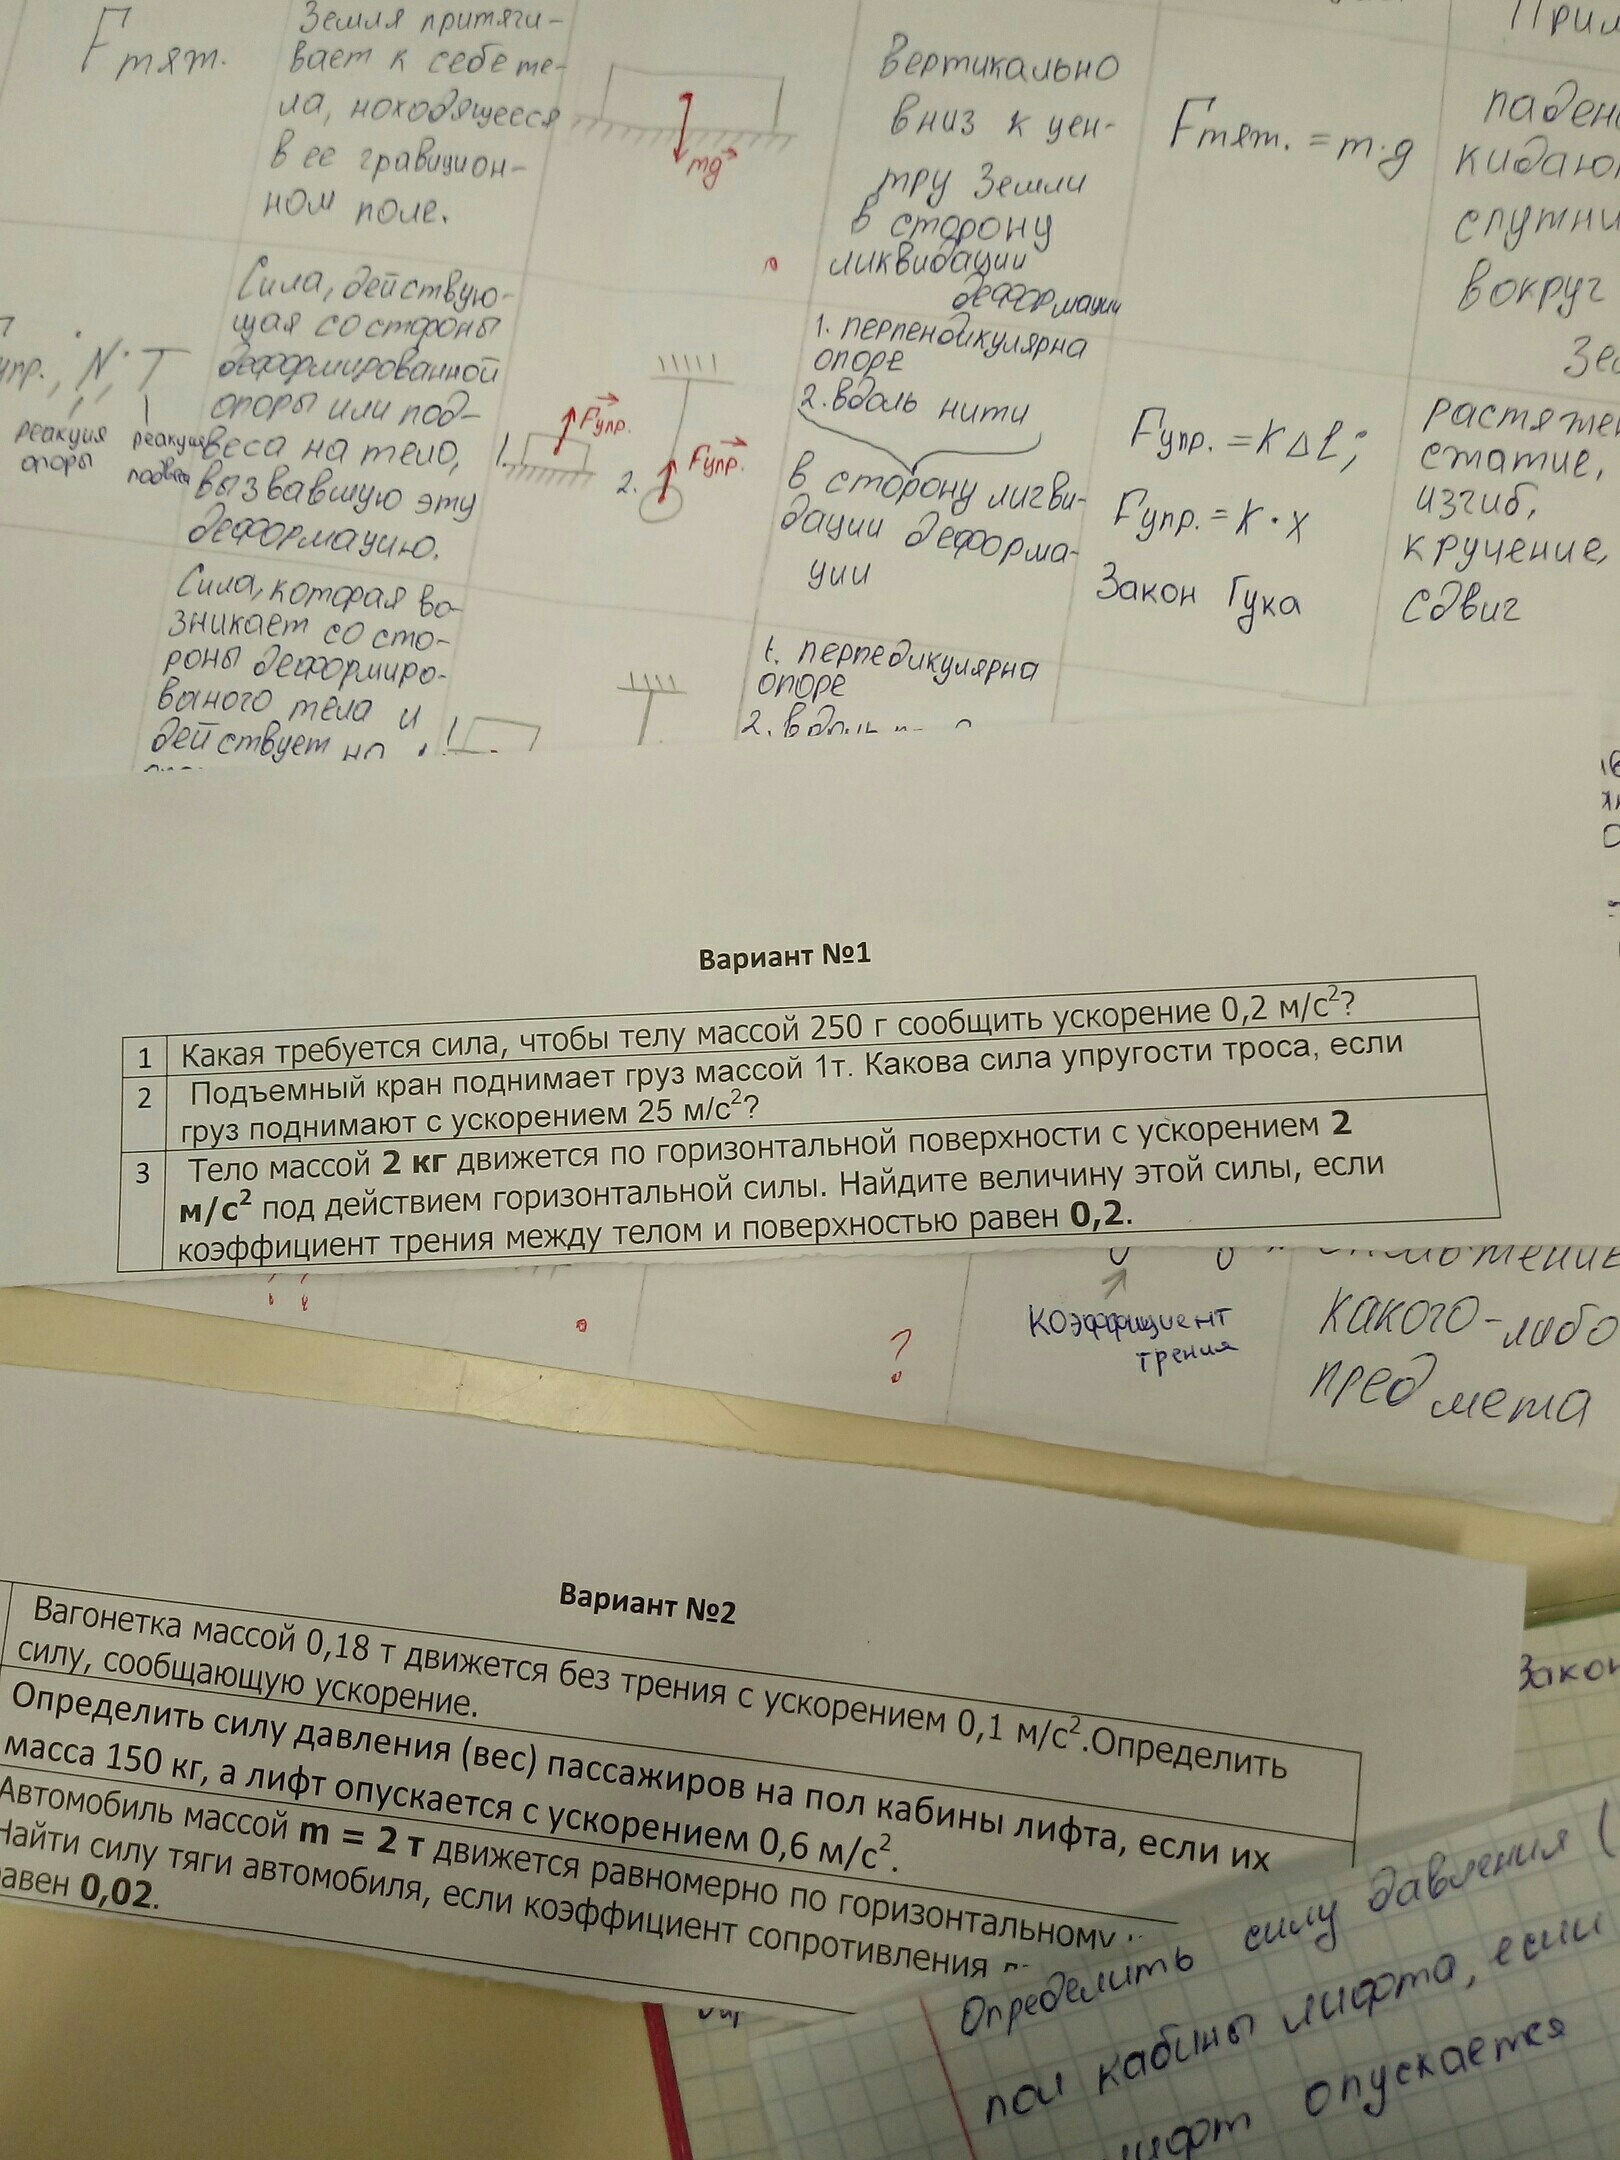 Прим
Fтят.
Земля притяги-
вает к себе те-
ла, находящееся
в ее гравицион-
ном поле.
mg
Вертикально
вниз к цен-
тру Земли
в сторону
ликвидации
деформации
Fтят. = m·g
падени
кидаю
спутни
вокруг
Зе
упр., N, T
реакция
опоры
реакция
подвеса
Сила, действую-
щая со стороны
деформированной
опоры или под-
веса на тело,
вызвавшую эту
деформацию.
1.
Fупр.
2.
Fупр.
1. перпендикулярна
опоре
2. вдоль нити
в сторону лигви-
дации деформа-
ции
Fупр. = kΔl;
Fупр. = k·x
Закон Гука
растяже
сжатие,
изгиб,
кручение,
сдвиг
Сила, которая во-
зникает со сто-
роны деформиро-
ваного тела и
действует на
1. перпедикулярна
опоре
2. вдоль
Вариант №1
1 Какая требуется сила, чтобы телу массой 250 г сообщить ускорение 0,2 м/с²?
2 Подъемный кран поднимает груз массой 1т. Какова сила упругости троса, если
груз поднимают с ускорением 25 м/с²?
3 Тело массой 2 кг движется по горизонтальной поверхности с ускорением 2
м/с² под действием горизонтальной силы. Найдите величину этой силы, если
коэффициент трения между телом и поверхностью равен 0,2.
?
Коэффициент
трения
какого-либо
предмета
Вариант №2
Вагонетка массой 0,18 т движется без трения с ускорением 0,1 м/с².Определить
силу, сообщающую ускорение.
Определить силу давления (вес) пассажиров на пол кабины лифта, если их
масса 150 кг, а лифт опускается с ускорением 0,6 м/с².
Автомобиль массой m = 2 т движется равномерно по горизонтальному
Найти силу тяги автомобиля, если коэффициент сопротивления
авен 0,02.
Закон
Определить силу давления (
пол кабины лифта, если
лифт опускается